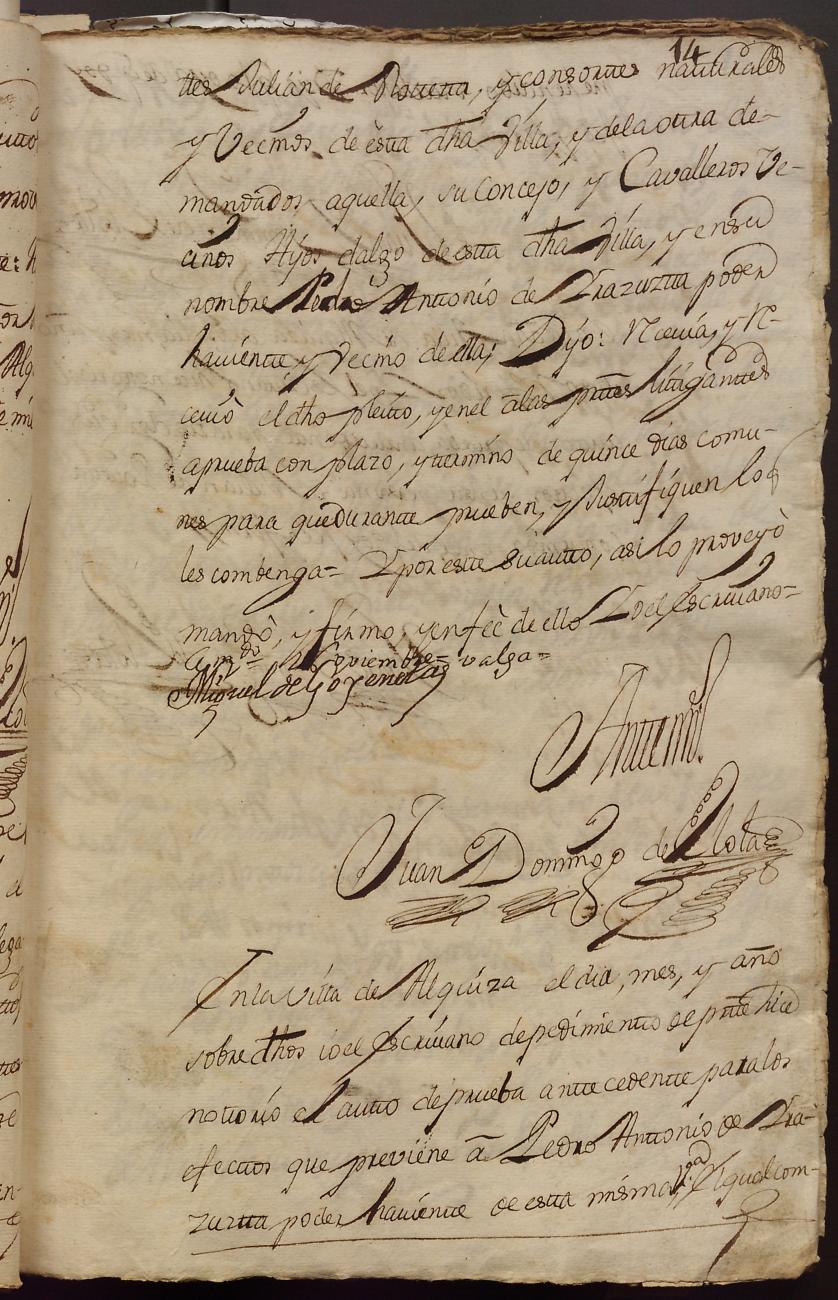 14
tes Julian de Rotteta, y consortes naturales
y Vecinos de esta dha Villa, y dela otra de-
mandados aquella, su Concejo, y Cavalleros Ve-
cinos Hijos dalgo de esta dha Villa, y en su
nombre Pedro Anttonio de Yrazuzta poder
haviente y Vecino de ella; Dijo: Recivia, y Re-
civiò el dho pleito, y en el a las prtes litigantes
a prueba con plazo, y termino de quince dias comu-
nes para que durante prueben, y Justifiquen lo q
les combenga= Y por este su auto, asi lo proveyò
mandò, y firmo, y en feè de ello Yo el Escrivano=
Em.do Noviembre= valga=
Miguel de Goyeneta
Ante mi
Juan Domingo de Elola
En la villa de Alquiza el dia, mes, y año
sobre dhos io el Escrivano de pedimiento de prte hice
notorio el autto de prueba antecedente para los
efectos que previene à Pedro Antonio de Yra-
zuzta poder haviente de esta misma v.ª el qual com-